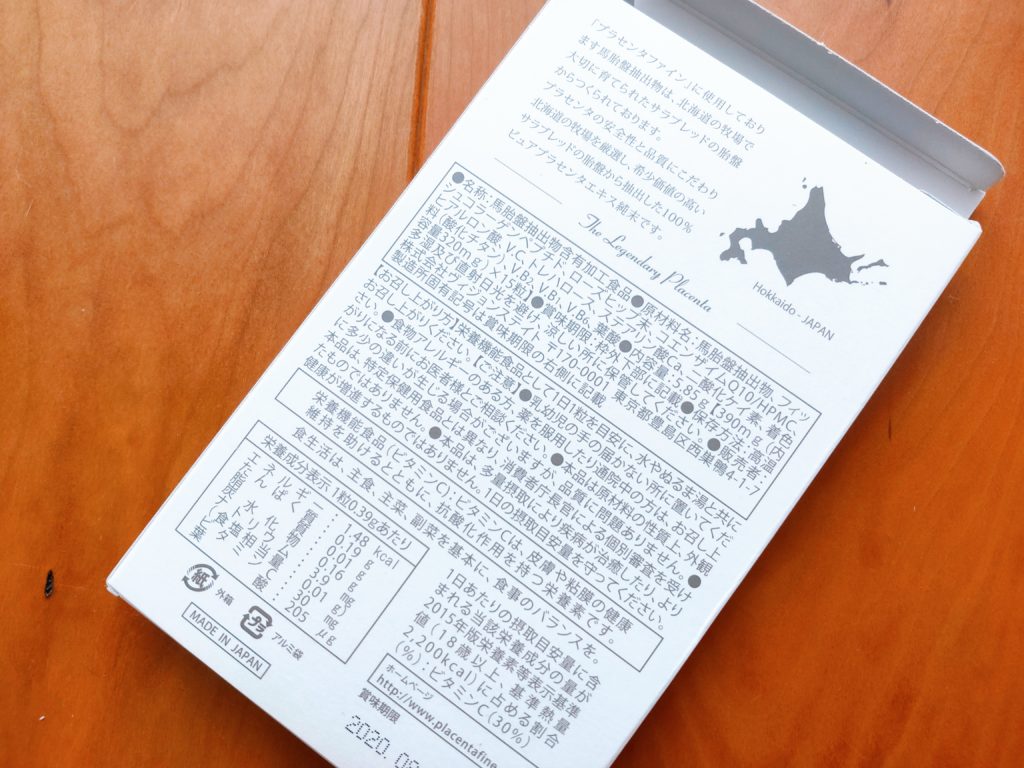 「プラセンタファイン」に使用しており
ます馬胎盤抽出物は、北海道の牧場で
大切に育てられたサラブレッドの胎盤
からつくられております。
プラセンタの安全性と品質にこだわり
北海道の牧場を厳選し、希少価値の高い
サラブレッドの胎盤から抽出した100%
ピュアプラセンタエキス純末です。
The Legendary Placenta
Hokkaido - JAPAN
●名称:馬胎盤抽出物含有加工食品●原材料名:馬胎盤抽出物、フィッ
シュコラーゲンペプチド、ローズヒップ末、コエンザイムQ10/HPMC、
ヒアルロン酸、V.C、トレハロース、ステアリン酸Ca、二酸化ケイ素、着色
料(酸化チタン)、V.B₂、V.B₁、V.B₆、葉酸●内容量:5.8g[390mg(内
容量320mg)×15粒]●賞味期限:枠外下部に記載●保存方法:高温
多湿及び直射日光を避け、涼しい所に保管してください。●販売者:
株式会社ラブリョーエイ 〒170-0001 東京都豊島区西巣鴨4-
製造所固有記号は賞味期限の右側に記載
【お召し上がり方】栄養機能食品として1日1粒を目安に、水やぬるま湯と共に
お召し上がりください。【ご注意】●乳幼児の手の届かない所に置いてくだ
さい。●食物アレルギーのある方、薬を服用したり通院中の方は、お召し上
がりになる前にお医者様とご相談ください。●本品は原材料の性質上、外観
に多少の違いが生じる場合がございますが、品質に問題ありません。●
本品は、特定保健用食品とは異なり、消費者庁長官による個別審査を受け
たものではありません。●本品は、多量摂取により疾病が治癒したり、より
健康が増進するものではありません。1日の摂取目安量を守ってください。
栄養機能食品(ビタミンC):ビタミンCは、皮膚や粘膜の健康
維持を助けるとともに、抗酸化作用を持つ栄養素です。
食生活は、主食、主菜、副菜を基本に、食事のバランスを。
栄養成分表示 1粒0.39gあたり
エネルギー 1.48 kcal
たんぱく質 0.19 g
脂質 0.01 g
炭水化物 0.16 g
ナトリウム 3.9 mg
(食塩相当量 0.01 g)
ビタミンC 30 mg
葉酸 205 μg
1日あたりの摂取目安量に含
まれる当該栄養成分の量が
2015年版栄養素等表示基準
値(18歳以上、基準熱量
2,200kcal)に占める割合
(%):ビタミンC(30%)
紙 外箱
プラ アルミ袋
MADE IN JAPAN
ホームページ
http://www.placentafine
賞味期限
2020.